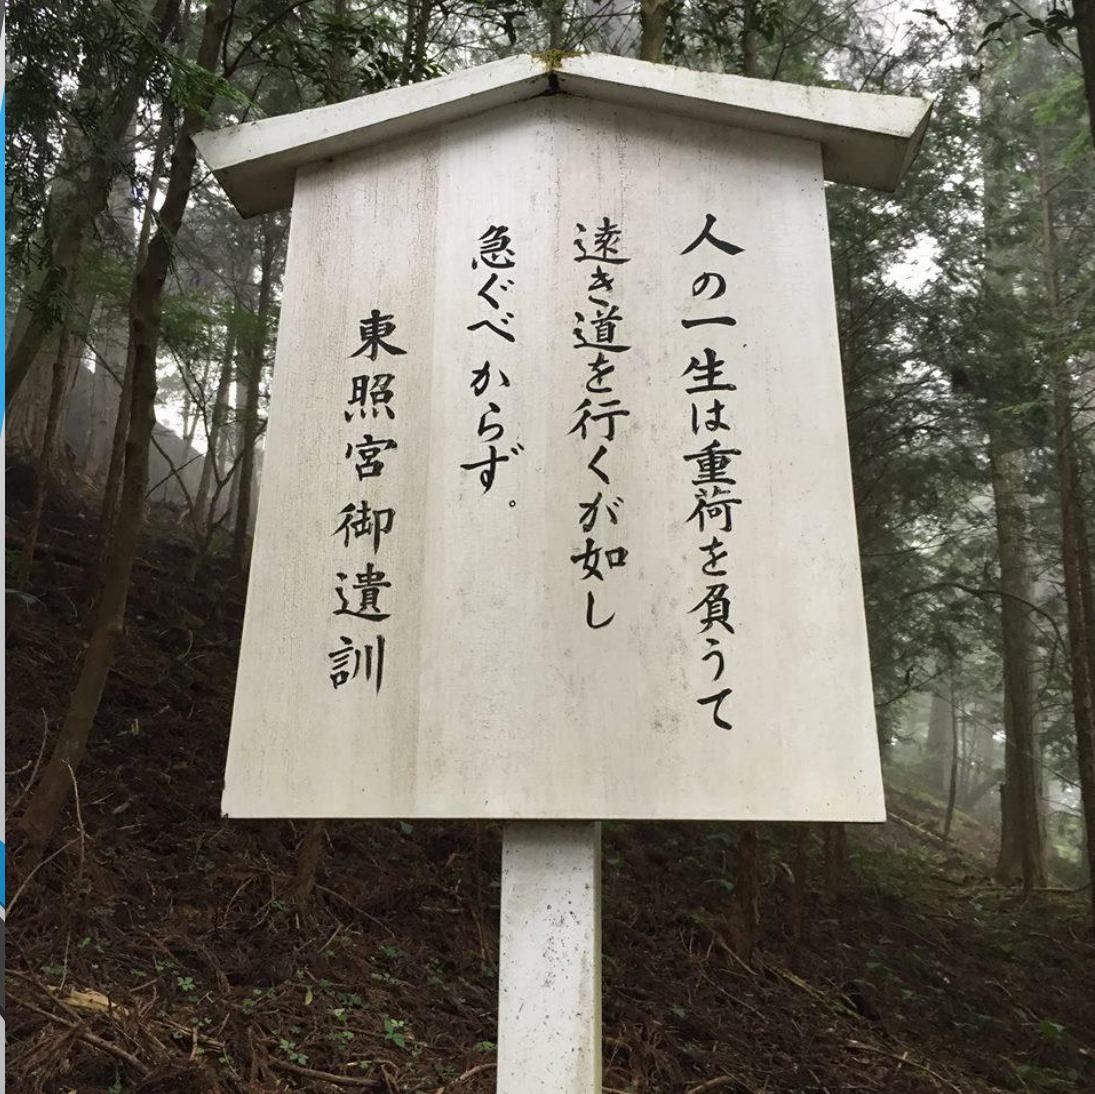 人の一生は重荷を負うて
遠き道を行くが如し
急ぐべからず。
東照宮御遺訓